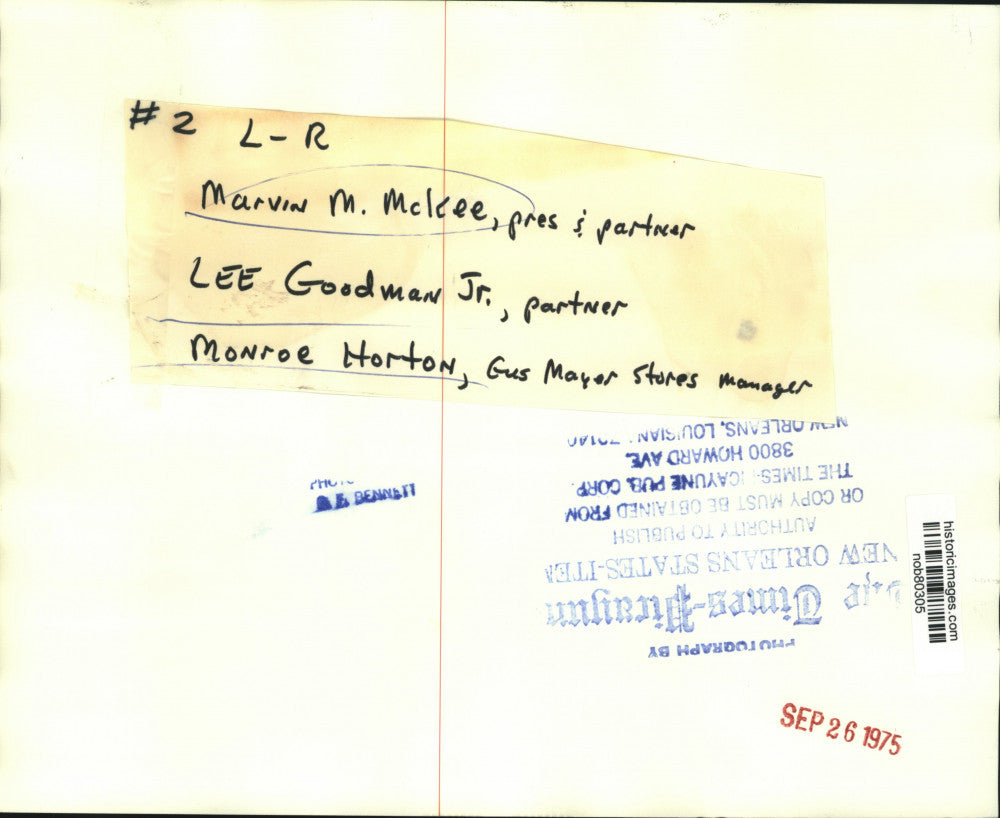 #2 L-R
Marvin M. McKee, pres & partner
LEE Goodman Jr., partner
Monroe Horton, Gus Mayer Stores manager
B.E. BENNETT
PHOTOGRAPH BY
The Times-Picayun
NEW ORLEANS STATES-ITEM
AUTHORITY TO PUBLISH
OR COPY MUST BE OBTAINED FROM
THE TIMES-PICAYUNE PUB. CORP.
3800 HOWARD AVE.
NEW ORLEANS, LOUISIAN
historicimages.com
nob80305
SEP 26 1975